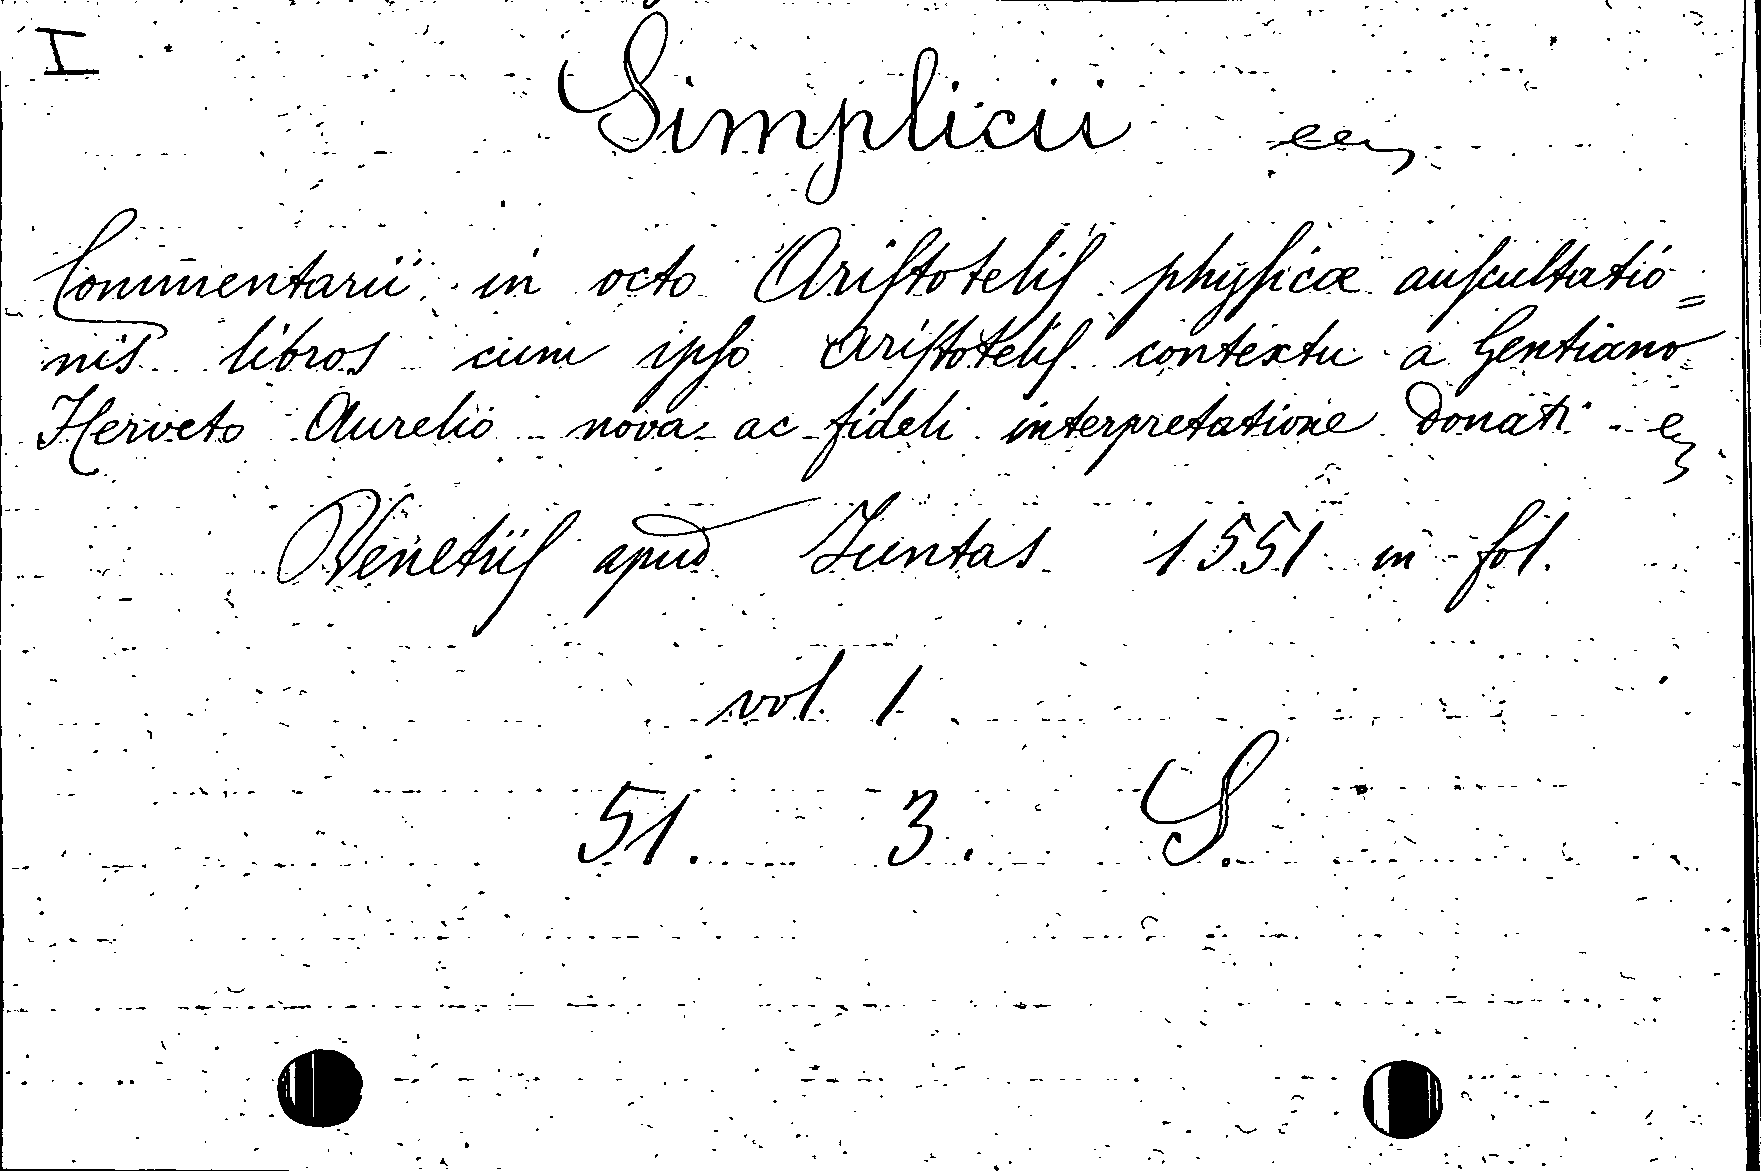 I
Simplicii
Commentarii in octo Aristotelis physicæ auscultatio=
nis libros cum ipso Aristotelis contextu a Gentiano
Herveto Aurelio nova ac fideli interpretatione donati
Venetiis apud Juntas 1551 in fol.
vol. 1
51. 3. S.